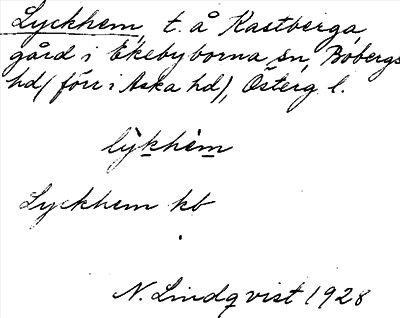 Lyckhem, t. å Kastberga,
gård i Ekebyborna sn, Bobergs
hd (förr i Aska hd), Österg l.
lỳkhèm
Lyckhem kb
N. Lindqvist 1928